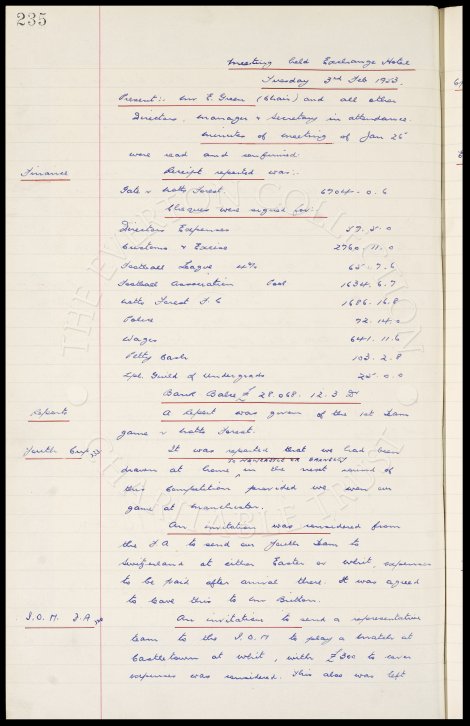 235
Meeting held Exchange Hotel
Tuesday 3rd Feb 1953.
Present:- Mr E. Green (Chair) and all other
Directors, Manager & Secretary in attendance.
Minutes of meeting of Jan 26
were read and confirmed.
Finance
Receipt reported was:-
Gate v Notts Forest. 6704. 0. 6
Cheques were signed for:-
Directors Expenses
Customs & Excise 2760. 11. 0
Football League 4% 65. 7. 6
Football Association Pool 1634. 6. 7
Notts Forest F C 1686. 16. 8
Police 72. 14. 0
Wages 641. 11. 6
Petty Cash 103. 2. 8
Lpl. Guild of Undergrads 25. 0. 0
Bank Balce £ 28.068. 12. 3 Dr
Reports
A report was given of the 1st Team
game v Notts Forest.
Youth Cup
It was reported that we had been
to Newcastle or Burnley
drawn at home in the next round of
this competition provided we won our
game at Manchester.
An invitation was considered from
the F A to send our Youth Team to
Switzerland at either Easter or Whit, expenses
to be paid after arrival there. It was agreed
to leave this to Mr Britton.
I.O.M. F.A
An invitation to send a representative
team to the I.O.M to play a match at
Castletown at Whit, with £300 to cover
expenses was considered. This also was left
THE EVERTON COLLECTION
CHARITABLE TRUST